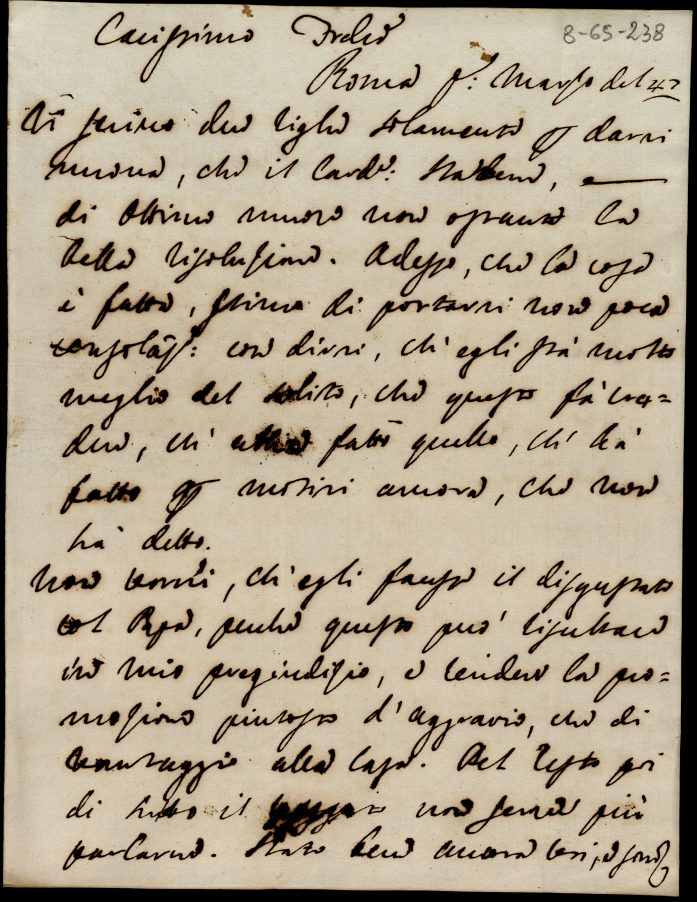 Carissimo Frello
8-65-238
Roma p: Marzo del 47
Vi scrivo due righe solamente per darvi
nuova, che il Card: sta bene, e
di ottimo umore non ostante la
bella risoluzione. Adesso, che la cosa
è fatta, stimo di portarvi non poca
consolaz: con dirvi, ch'egli stà molto
meglio del solito, che questo fà cre=
dere, ch' abbia fatto quello, ch' hà
fatto per motivi ancora, che non
hà detto.
Non vorrei, ch'egli facesse il disgustato
col Papa, perche questo può risultare
in mio pregiudizio, e rendere la pro=
mozione piutosto d'aggravio, che di
vantaggio alla Casa. Del resto poi
di tutto il non serve più
parlarne. State bene ancora voi, e